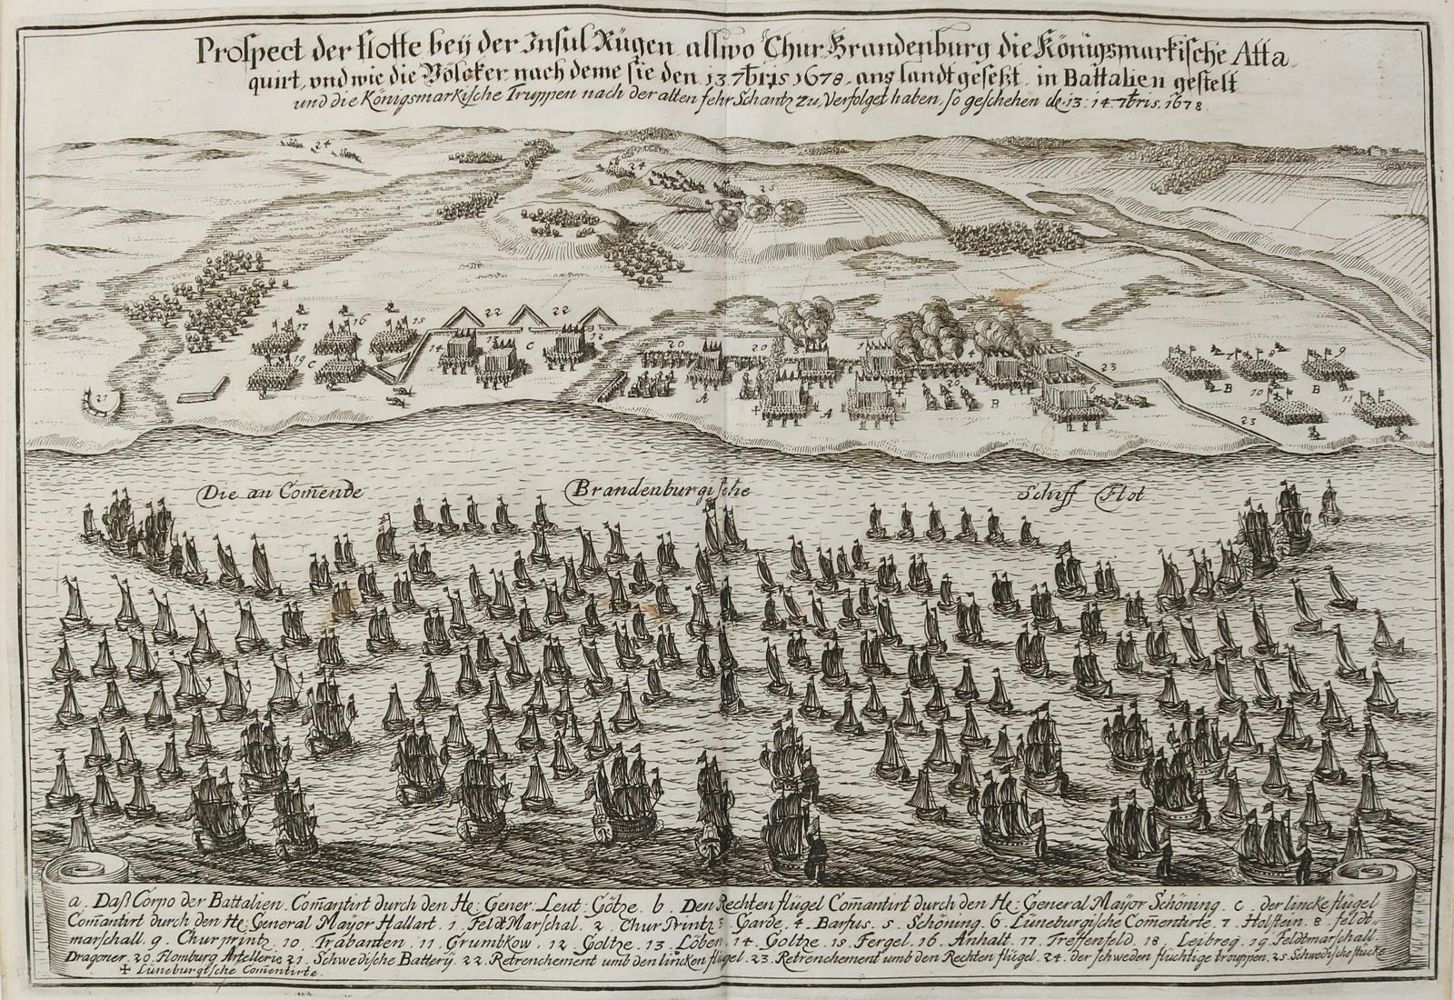 Prospect der flotte beÿ der Insul Rügen allwo Chur Brandenburg die Königsmarkische Atta,
quirt, vnd wie die Völcker nach deme sie den 13 7bris 1678. ans landt gesetzt in Battalien gestelt
und die Königsmarkische Truppen nach der alten fehr Schantz zu, Verfolget haben, so geschehen de. 13. 14. 7bris. 1678.
24
24
25
17 16 15 22 22
14 13 C 12
19 C
20 20 3 1 4 5 23 7 8 9
B B
21 A 20 6 10
A B 11
23
Die an Com̄ende Brandenburgische Schiff Flot
a. Daß Corpo der Battalien. Com̄antirt durch den He: Gener: Leut: Götze. b. Den Rechten flügel Com̄antirt durch den He: General Mayor Schöning. c. der lincke flügel
Com̄antirt durch den He: General Mayor Hallart. 1. Feldt Marschal. 2. Chur Printz 3 Garde. 4. Barfus. 5. Schöning. 6. Lüneburgische Com̄entirte. 7. Holstein. 8. feldt
marschall. 9. Churprintz. 10. Trabanten. 11. Grumbkow. 12. Goltze. 13. Löben. 14. Goltze. 15. Fergel. 16. Anhalt. 17. Treffenfeld. 18. Leibreg. 19. Feldtmarschall
Dragoner. 20. Homburg Artellerie 21. Schwedische Batterÿ. 22. Retrenchement umb den lincken flügel. 23. Retrenchement umb den Rechten flügel. 24. der schweden flüchtige trouppen. 25. Schwedische stucke
+ Lüneburgische Comentirte.